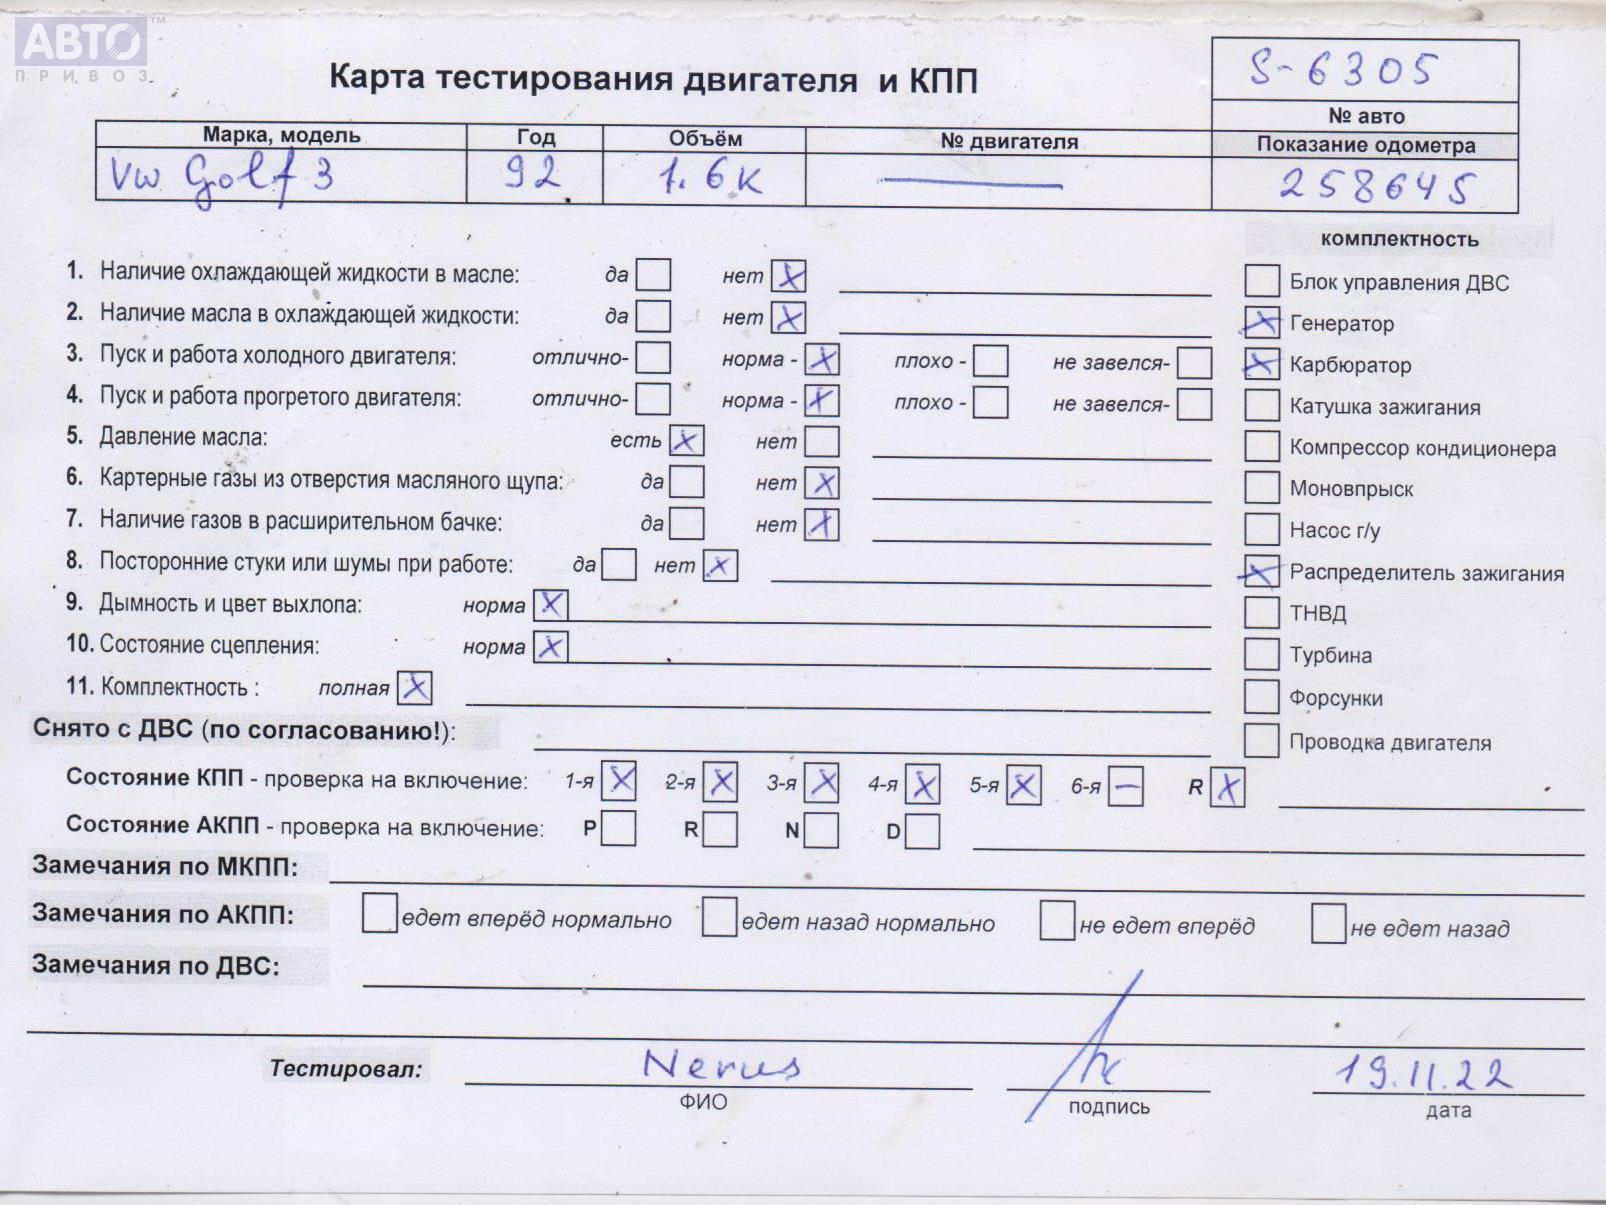 АВТО™
ПРИВОЗ
Карта тестирования двигателя и КПП
S-6305
№ авто
Марка, модель Год Объём № двигателя Показание одометра
VW Golf 3 92 1.6к — 258645
комплектность
1. Наличие охлаждающей жидкости в масле: да нет X
Блок управления ДВС
2. Наличие масла в охлаждающей жидкости: да нет X
X Генератор
3. Пуск и работа холодного двигателя: отлично- норма - X плохо - не завелся-
X Карбюратор
4. Пуск и работа прогретого двигателя: отлично- норма - X плохо - не завелся-
Катушка зажигания
5. Давление масла: есть X нет
Компрессор кондиционера
6. Картерные газы из отверстия масляного щупа: да нет X
Моновпрыск
7. Наличие газов в расширительном бачке: да нет X
Насос г/у
8. Посторонние стуки или шумы при работе: да нет X
X Распределитель зажигания
9. Дымность и цвет выхлопа: норма X
ТНВД
10. Состояние сцепления: норма X
Турбина
11. Комплектность : полная X
Форсунки
Снято с ДВС (по согласованию!):
Проводка двигателя
Состояние КПП - проверка на включение: 1-я X 2-я X 3-я X 4-я X 5-я X 6-я — R X
Состояние АКПП - проверка на включение: P R N D
Замечания по МКПП:
Замечания по АКПП: едет вперёд нормально едет назад нормально не едет вперёд не едет назад
Замечания по ДВС:
Тестировал: Nerus 19.11.22
ФИО подпись дата